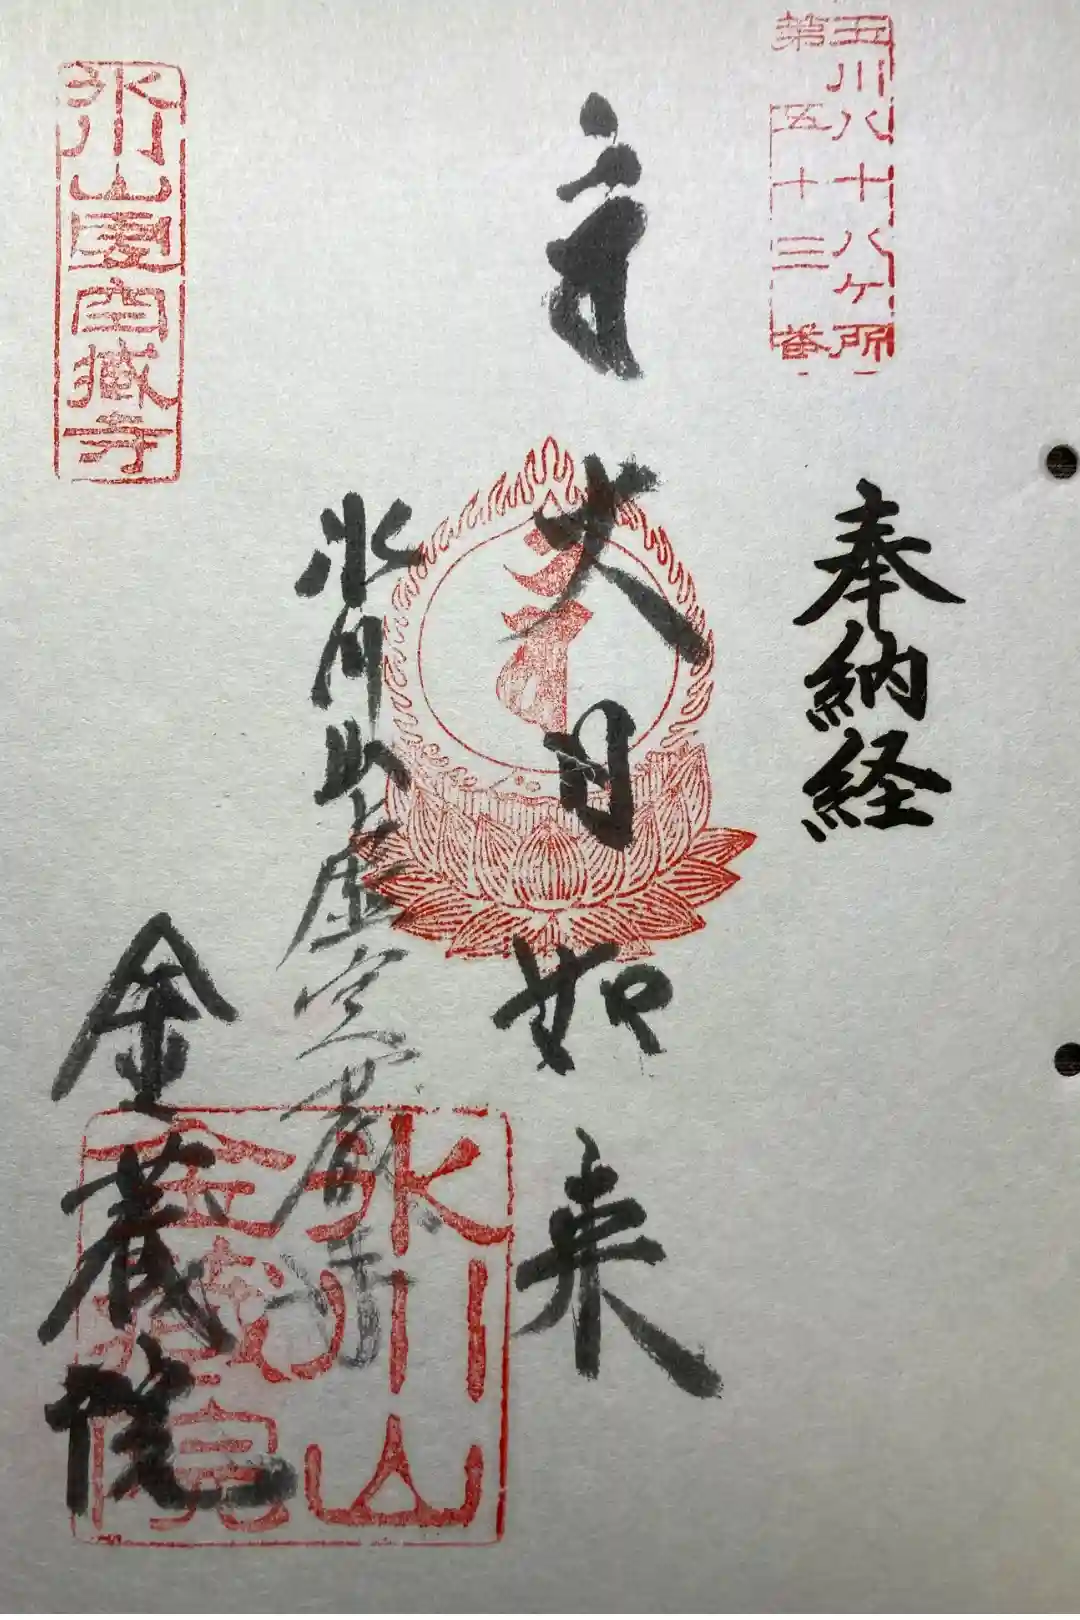 玉川八十八ケ所
第五十三番
奉納経
大日如来
氷川山虚空蔵寺
金蔵院
氷川山虚空藏寺
氷川山
金藏院